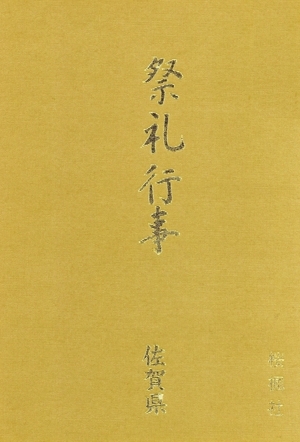 祭礼行事
佐賀県
桜楓社